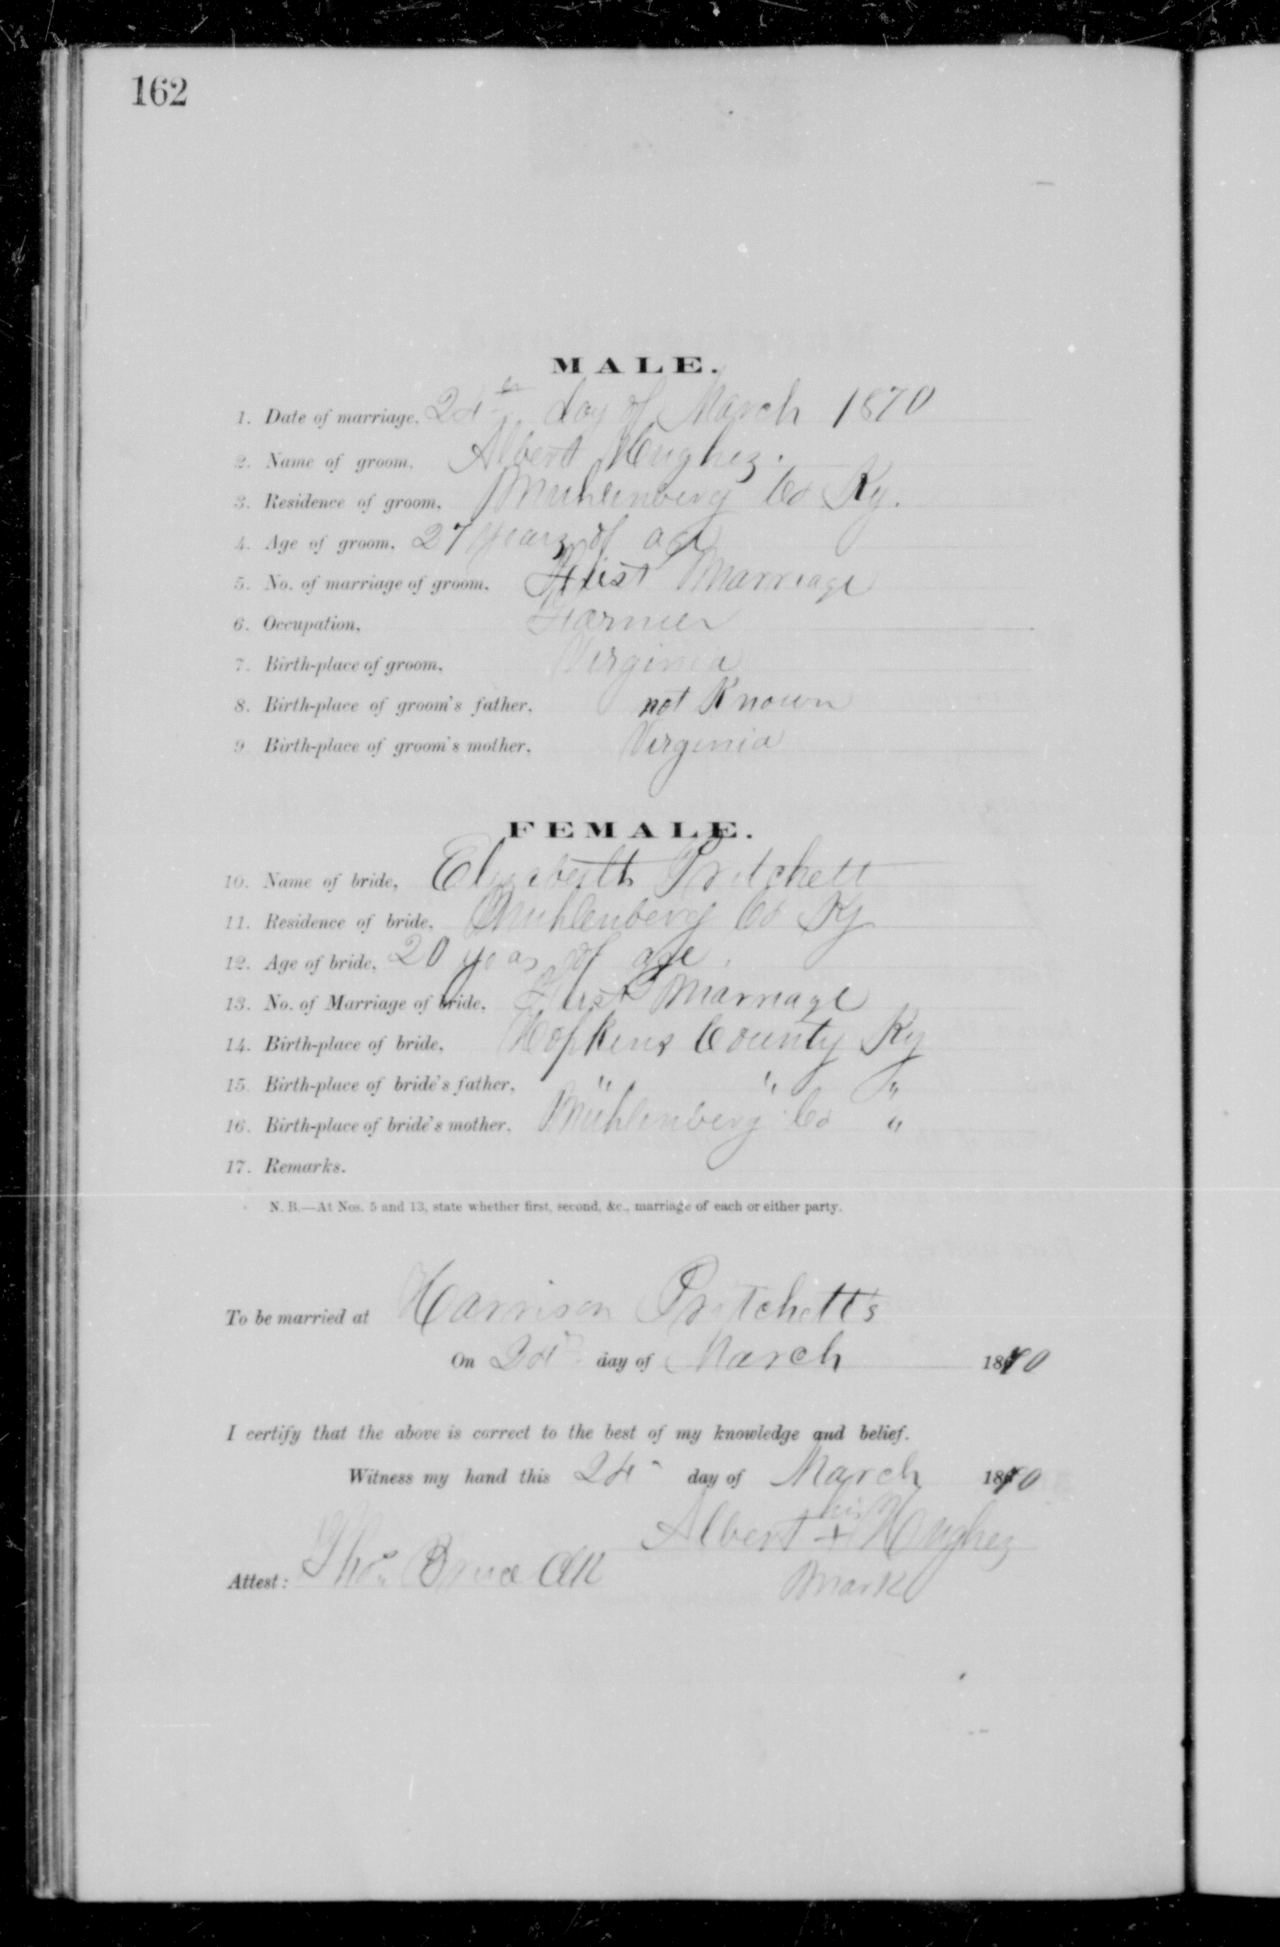 162
MALE.
1. Date of marriage, 24th day of March 1870
2. Name of groom, Albert Hughes.
3. Residence of groom, Muhlenberg Co Ky.
4. Age of groom, 27 years of age
5. No. of marriage of groom, First Marriage
6. Occupation, Farmer
7. Birth-place of groom, Virginia
8. Birth-place of groom's father, not Known
9. Birth-place of groom's mother, Virginia
FEMALE.
10. Name of bride, Elizabeth Pritchett
11. Residence of bride, Muhlenberg Co Ky
12. Age of bride, 20 years of age.
13. No. of Marriage of bride, First Marriage
14. Birth-place of bride, Hopkins County Ky
15. Birth-place of bride's father, " " "
16. Birth-place of bride's mother, Muhlenberg Co "
17. Remarks.
N. B.—At Nos. 5 and 13, state whether first, second, &c., marriage of each or either party.
To be married at Harrison Pritchett's
On 24th day of March 1870
I certify that the above is correct to the best of my knowledge and belief.
Witness my hand this 24 day of March 1870
his
Albert + Hughes
Attest: Thos Bruce Clk mark